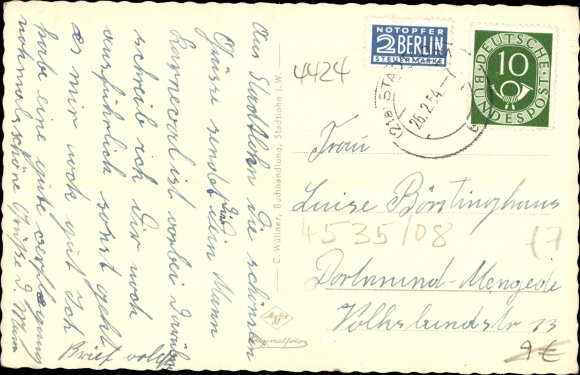 Aus Stadtlohn die schönsten
Grüsse sendet Dir Dein Mann
Karneval ist vorbei
schreib ich Dir noch
ausführlich sonst geht
es mir noch gut Ich
habe eine gute
nochmals schöne Grüsse
Brief
C. Wüllner, Buchhandlung, Stadtlohn i. W.
Agfa
Originalfoto
4424
NOTOPFER
2 BERLIN
STEUERMARKE
(21a) STADT
26.2.54
DEUTSCHE
BUNDESPOST
10
Frau
Luise Börstinghaus
4535/08
(7
Dortmund-Mengede
Volkslundstr 13
9€